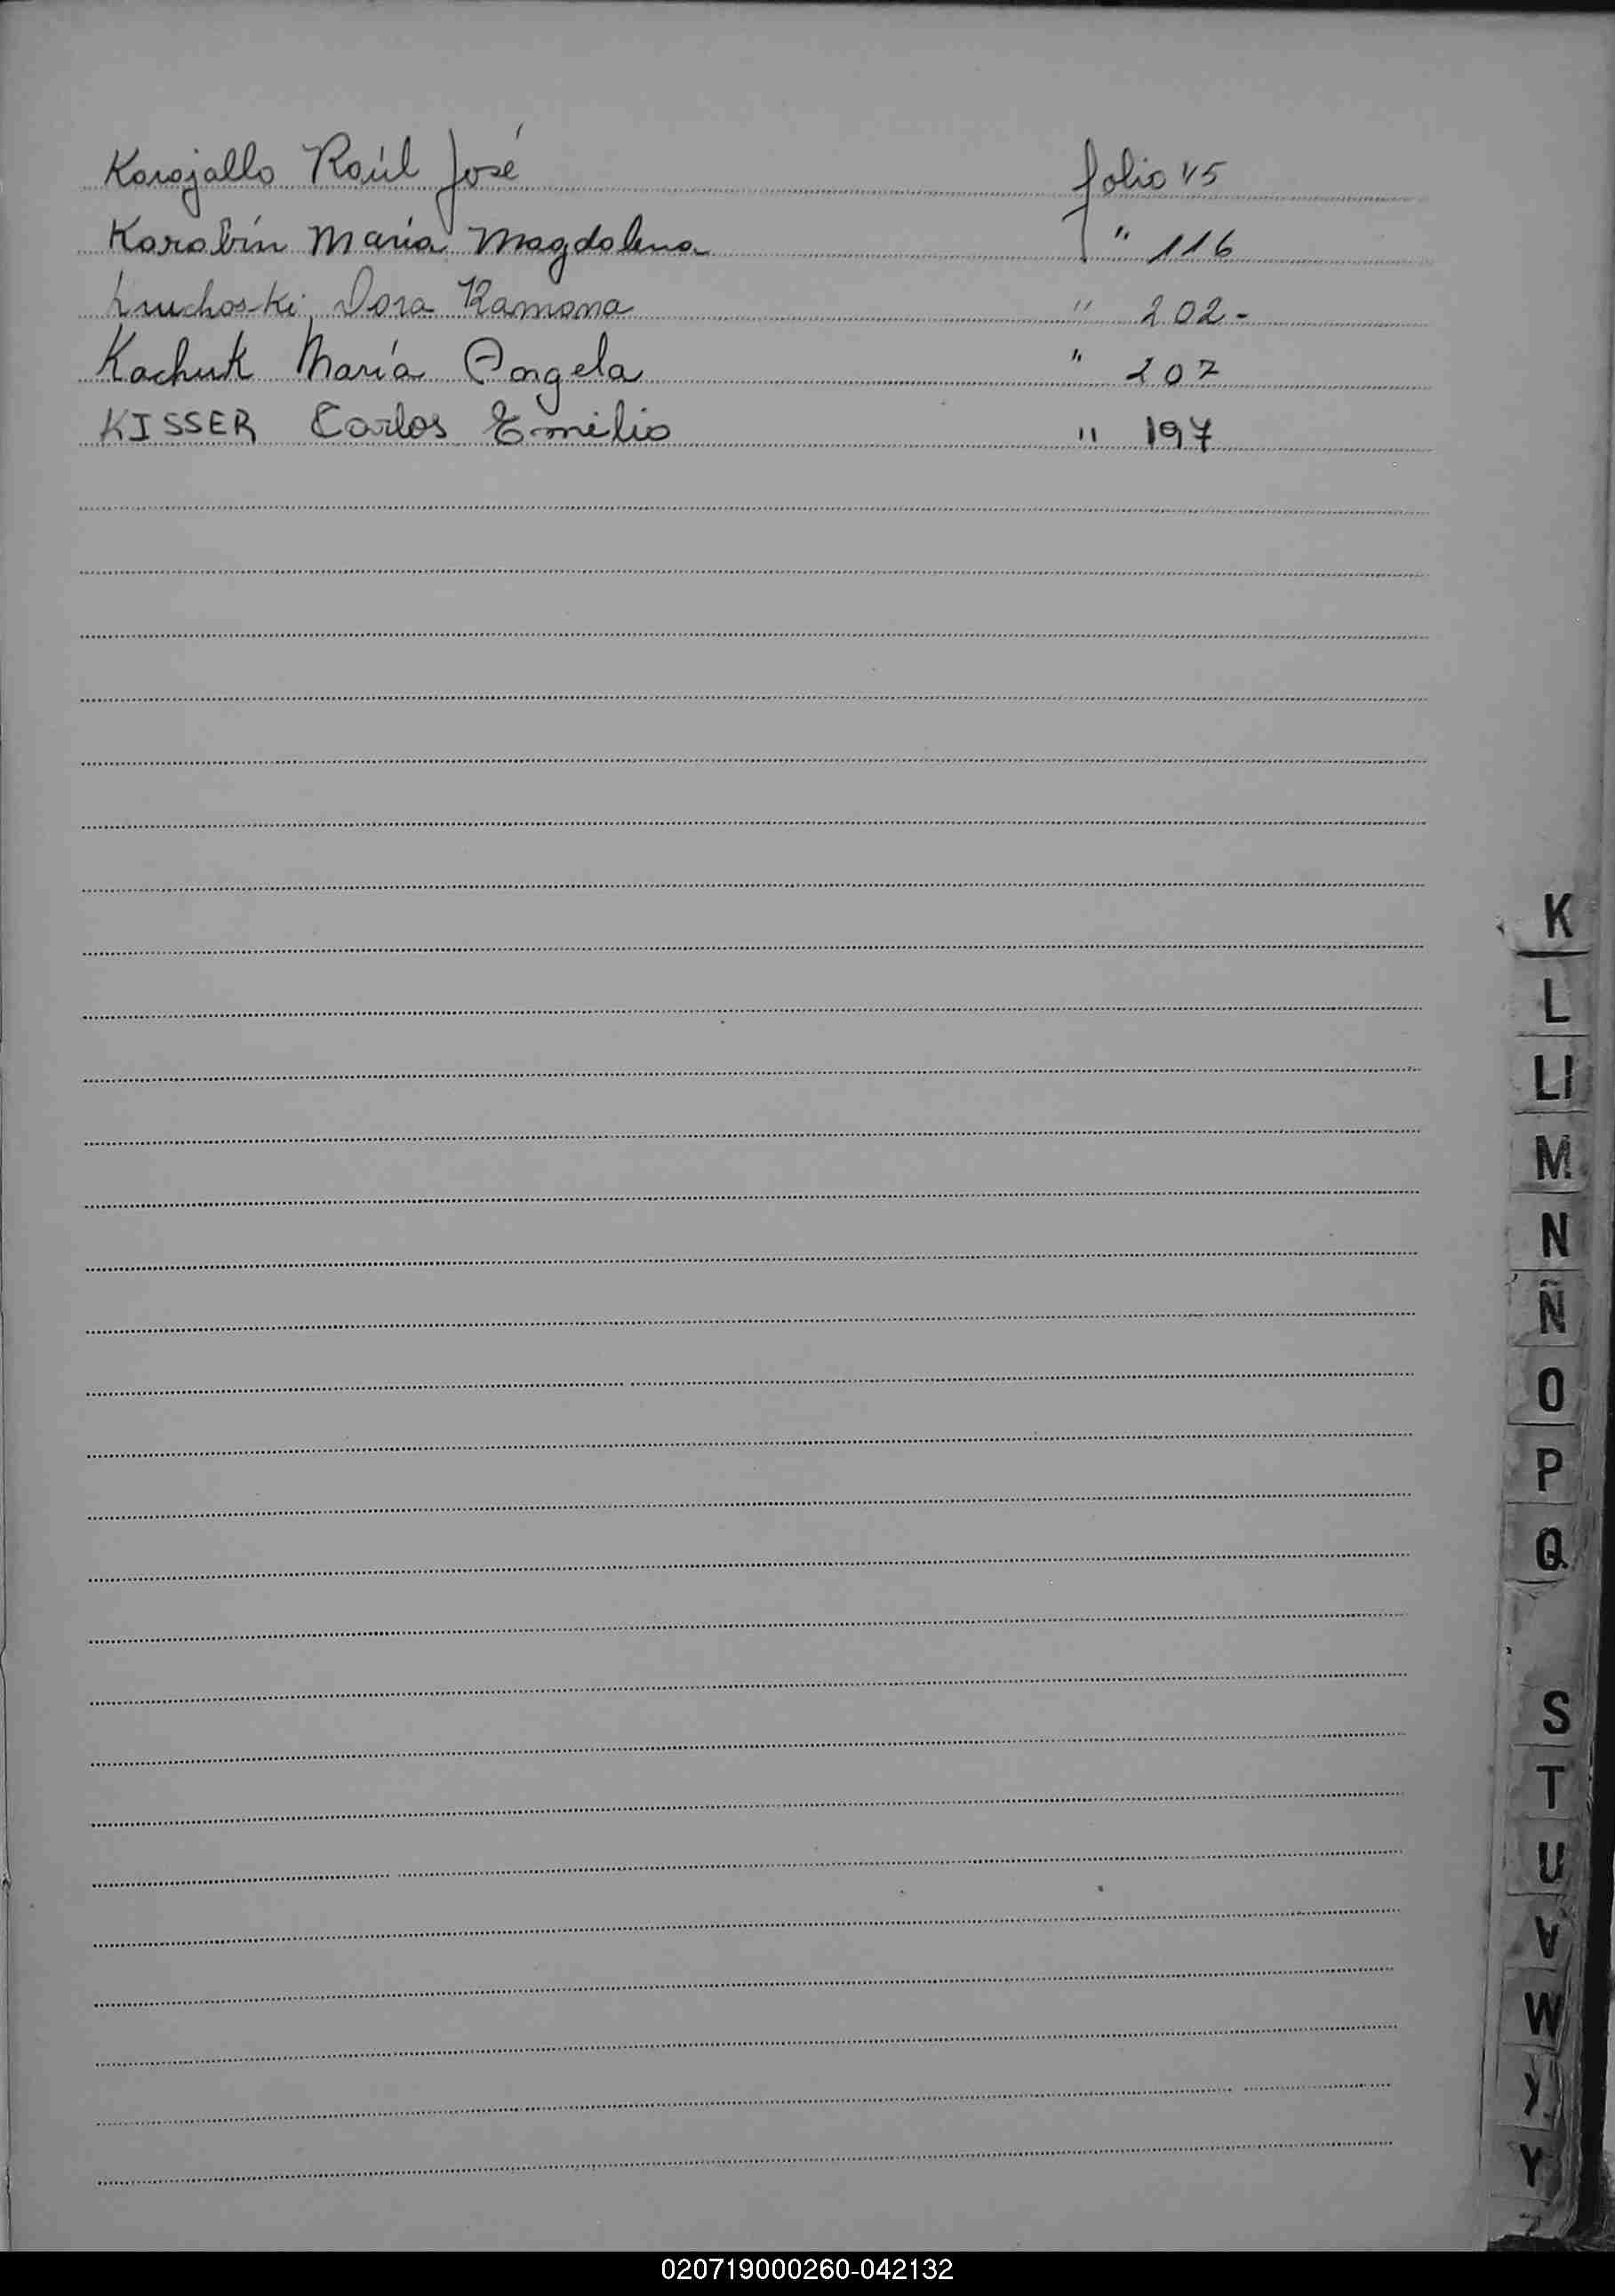 Karajallo Raúl José folio 45
Karabín María Magdalena " 116
Dora Ramona " 202-
Kachuk María Angela " 207
KISSER Carlos Emilio " 197
K
L
Ll
M
N
Ñ
O
P
Q
S
T
U
V
W
Y
020719000260-042132